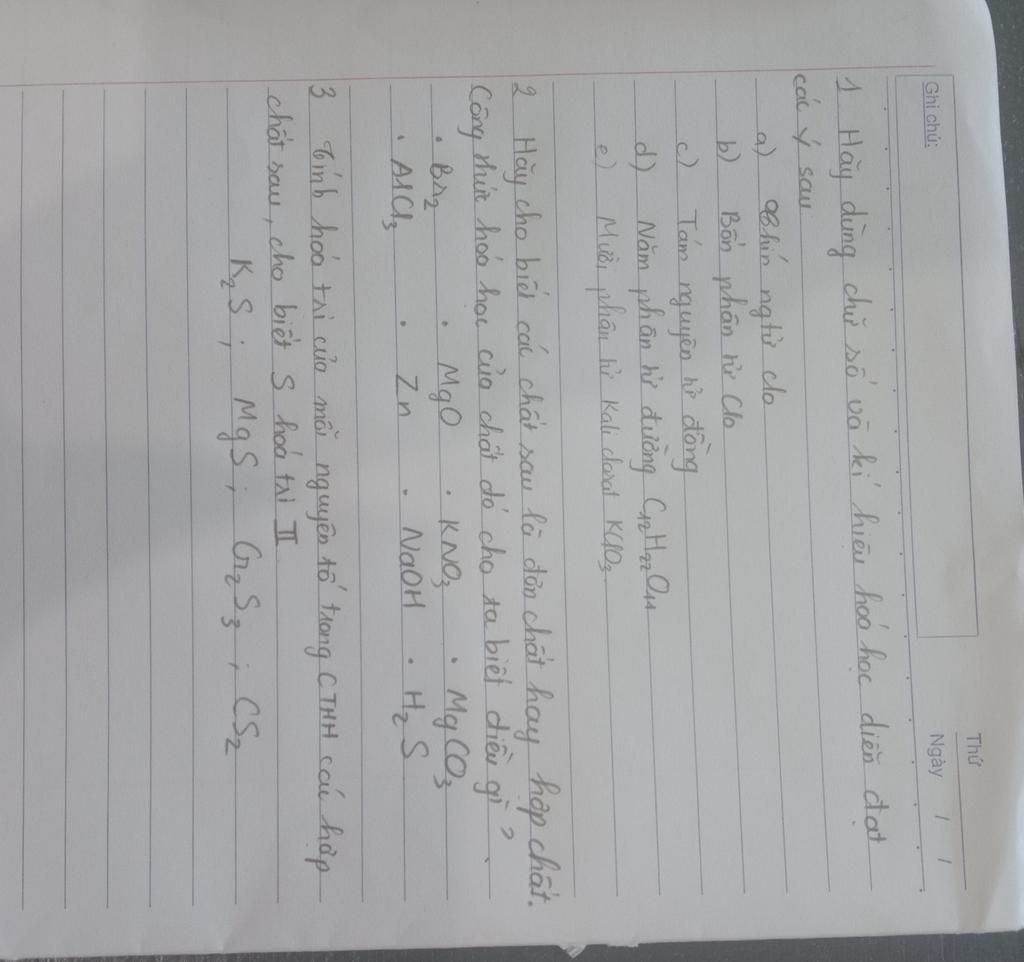 Ghi chú:
Thứ
Ngày / /
1 Hãy dùng chữ số và kí hiệu hoá học diễn đạt
các ý sau
a) Chín ngtử clo
b) Bốn phân tử Clo
c) Tám nguyên tử đồng
d) Năm phân tử đường C₁₂H₂₂O₁₁
e) Mười phân tử Kali clorat KClO₃
2 Hãy cho biết các chất sau là đơn chất hay hợp chất.
Công thức hoá học của chất đó cho ta biết điều gì?
• Br₂ • MgO • KNO₃ • MgCO₃
• AlCl₃ • Zn • NaOH • H₂S
3 Tính hoá trị của mỗi nguyên tố trong CTHH các hợp
chất sau, cho biết S hoá trị II
K₂S ; MgS ; Cr₂S₃ ; CS₂